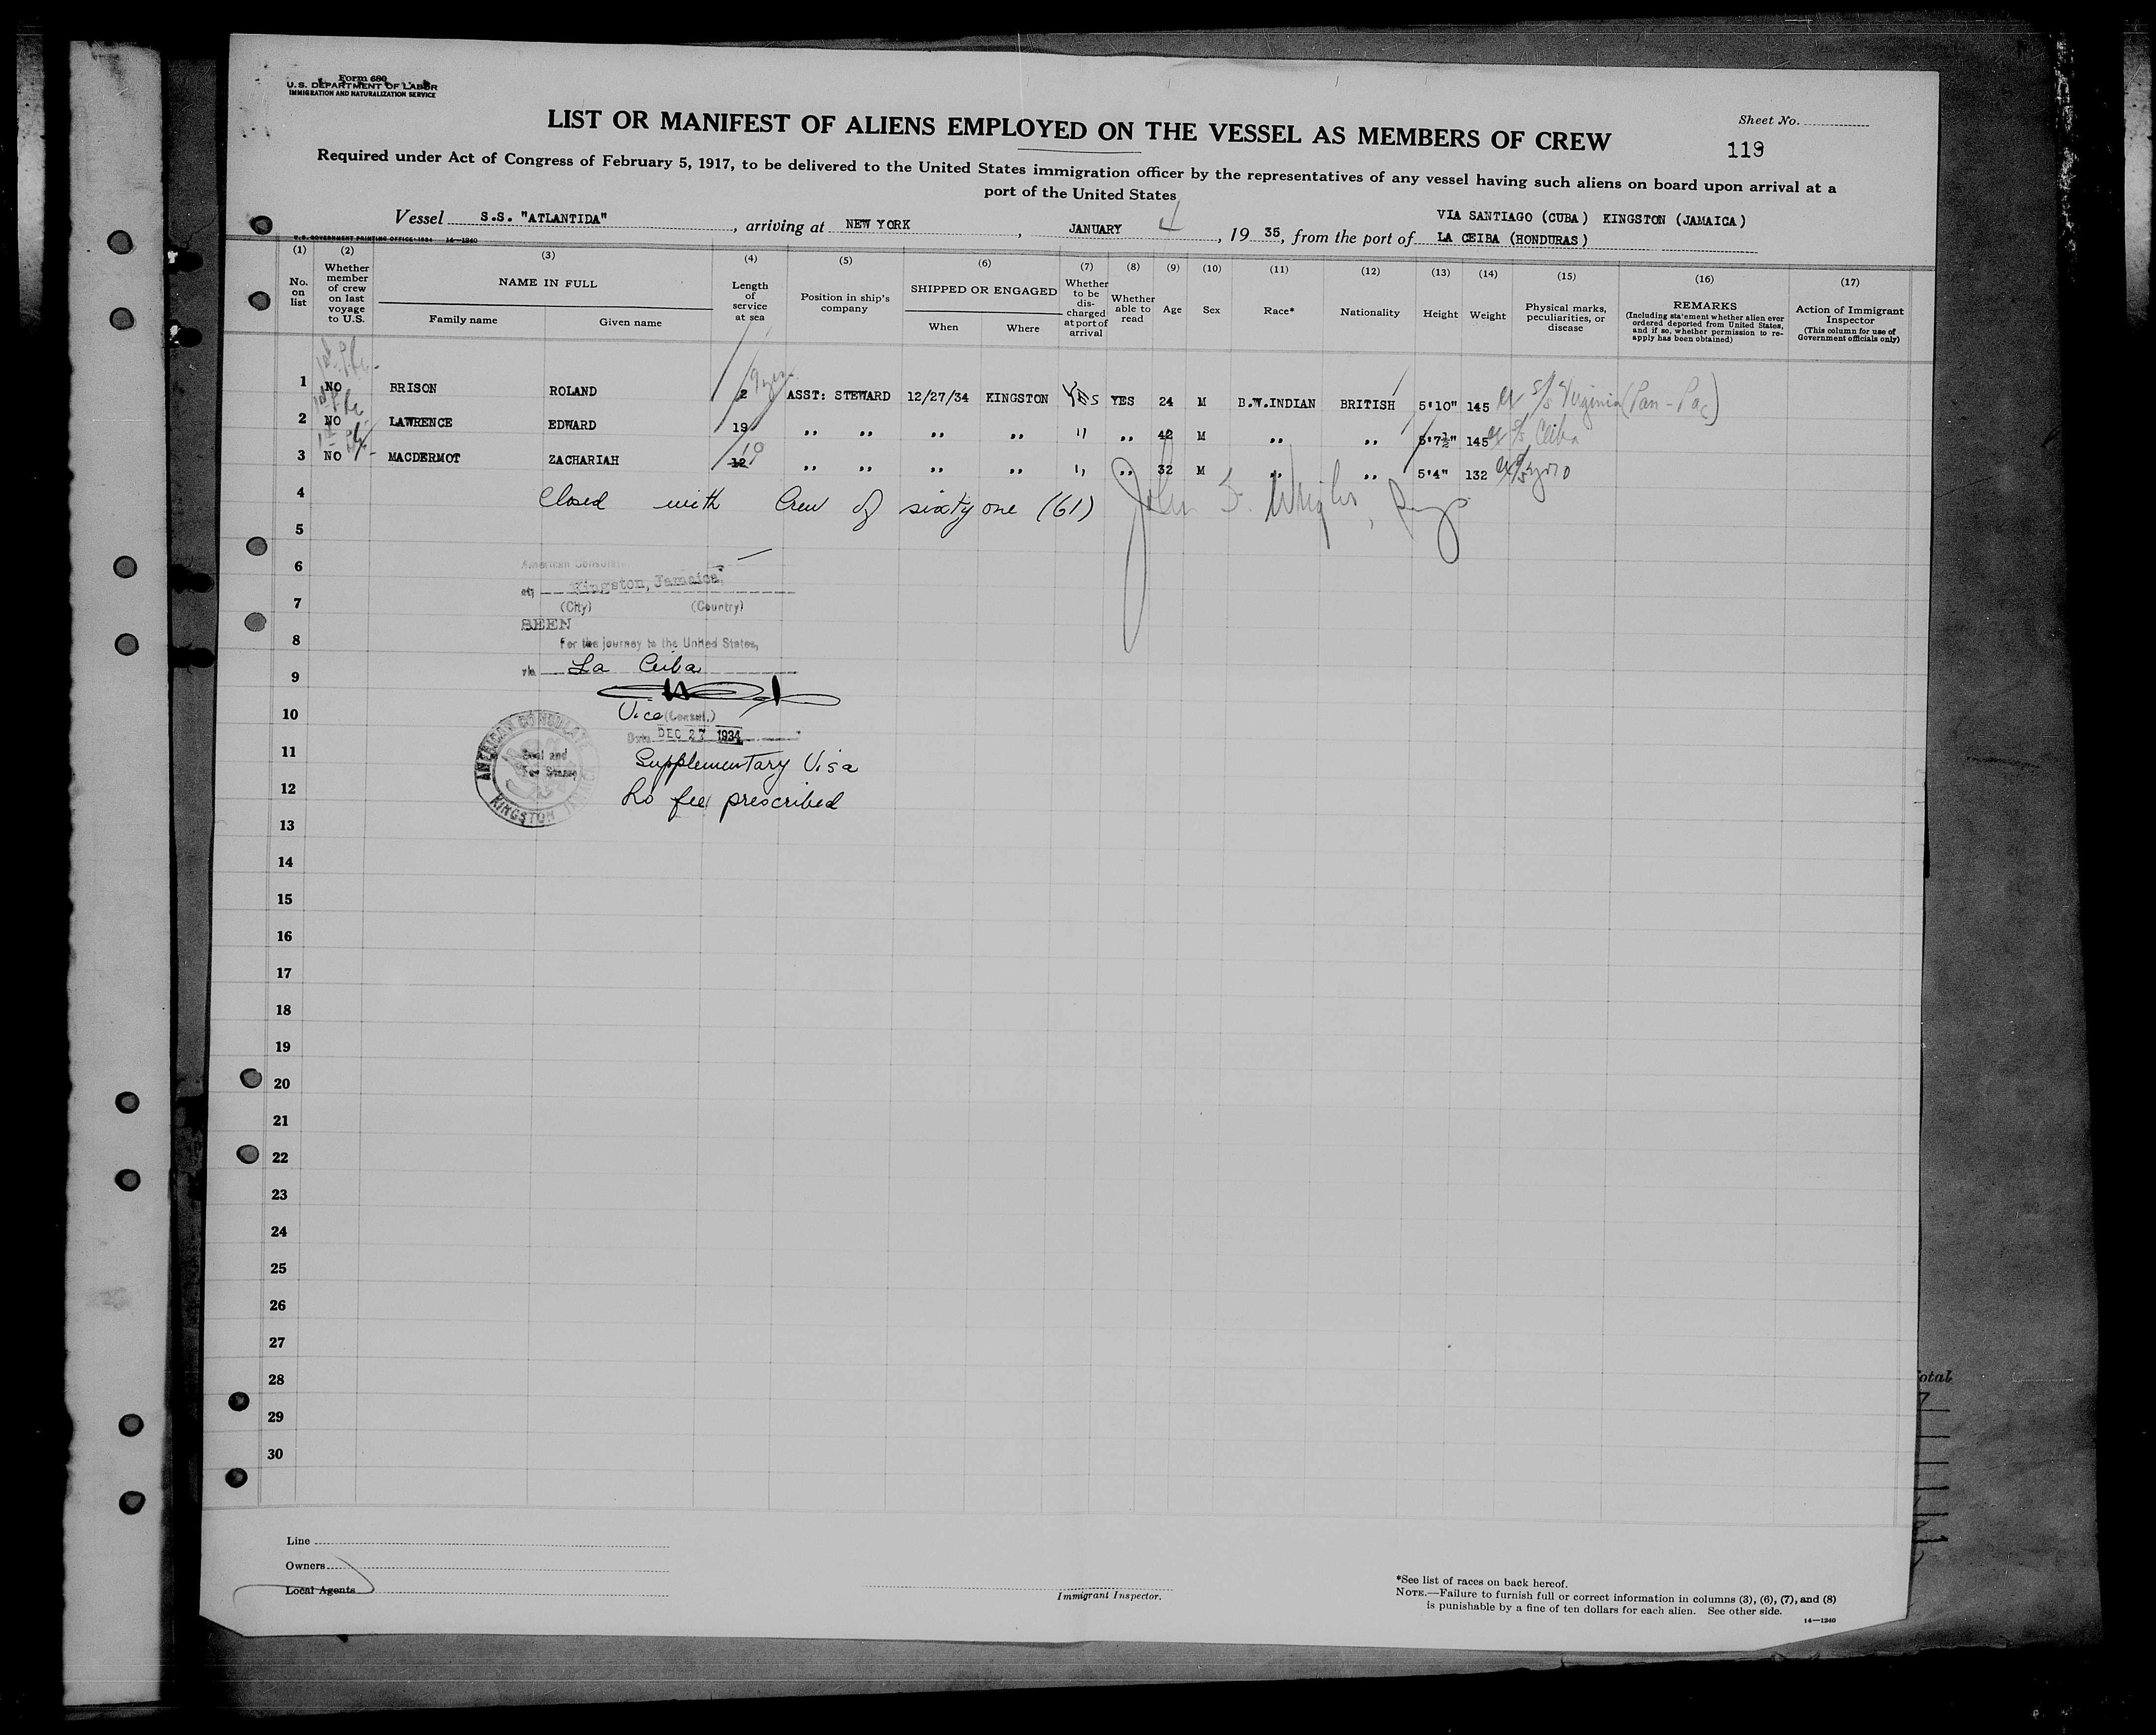 Form 680
U.S. DEPARTMENT OF LABOR
IMMIGRATION AND NATURALIZATION SERVICE
LIST OR MANIFEST OF ALIENS EMPLOYED ON THE VESSEL AS MEMBERS OF CREW
Sheet No.
119
Required under Act of Congress of February 5, 1917, to be delivered to the United States immigration officer by the representatives of any vessel having such aliens on board upon arrival at a
port of the United States
VIA SANTIAGO (CUBA) KINGSTON (JAMAICA)
Vessel S.S. "ATLANTIDA", arriving at NEW YORK, JANUARY 4, 19 35, from the port of LA CEIBA (HONDURAS)
U.S. GOVERNMENT PRINTING OFFICE: 1934 14—1240
(1) (2) (3) (4) (5) (6) (7) (8) (9) (10) (11) (12) (13) (14) (15) (16) (17)
No. on list
Whether member of crew on last voyage to U.S.
NAME IN FULL
Family name Given name
Length of service at sea
Position in ship's company
SHIPPED OR ENGAGED
When Where
Whether to be discharged at port of arrival
Whether able to read
Age
Sex
Race*
Nationality
Height
Weight
Physical marks, peculiarities, or disease
REMARKS
(Including statement whether alien ever ordered deported from United States, and if so, whether permission to reapply has been obtained)
Action of Immigrant Inspector
(This column for use of Government officials only)
1 NO BRISON ROLAND 2 9 yrs ASST: STEWARD 12/27/34 KINGSTON YES YES 24 M B.W.INDIAN BRITISH 5'10" 145 ex S/S Virginia (Pan-Pac)
2 NO LAWRENCE EDWARD 19 ,, ,, ,, ,, " ,, 42 M ,, ,, 5'7½" 145 ex S/S Ceiba
3 NO MACDERMOT ZACHARIAH 12 19 ,, ,, ,, ,, " ,, 32 M ,, ,, 5'4" 132
4 Closed with Crew of sixty one (61) John F. Wright
5
6
American Consulate
at Kingston, Jamaica
7
(City) (Country)
SEEN
8
For the journey to the United States,
via La Ceiba
9
10
Vice (Consul.)
Date DEC 27 1934
11
AMERICAN CONSULATE
KINGSTON JAMAICA
Seal and
Fee Stamp
Supplementary Visa
12
No fee prescribed
13
14
15
16
17
18
19
20
21
22
23
24
25
26
27
28
29
30
otal
Line
Owners
Local Agents
Immigrant Inspector.
*See list of races on back hereof.
NOTE.—Failure to furnish full or correct information in columns (3), (6), (7), and (8)
is punishable by a fine of ten dollars for each alien. See other side.
14—1240